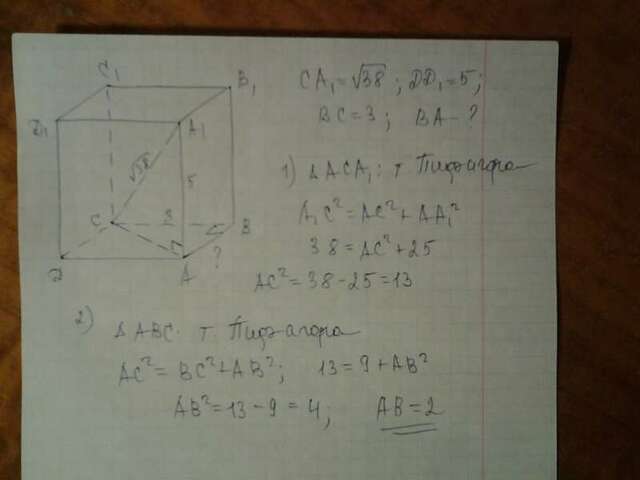 C₁
B₁
D₁
A₁
√38
5
C
3
B
D
A
?
CA₁=√38 ; DD₁=5;
BC=3; BA - ?
1) ΔACA₁: т. Пифагора
A₁C²=AC²+AA₁²
38=AC²+25
AC²=38-25=13
2) ΔABC т. Пифагора
AC²=BC²+AB²; 13=9+AB²
AB²=13-9=4; AB=2